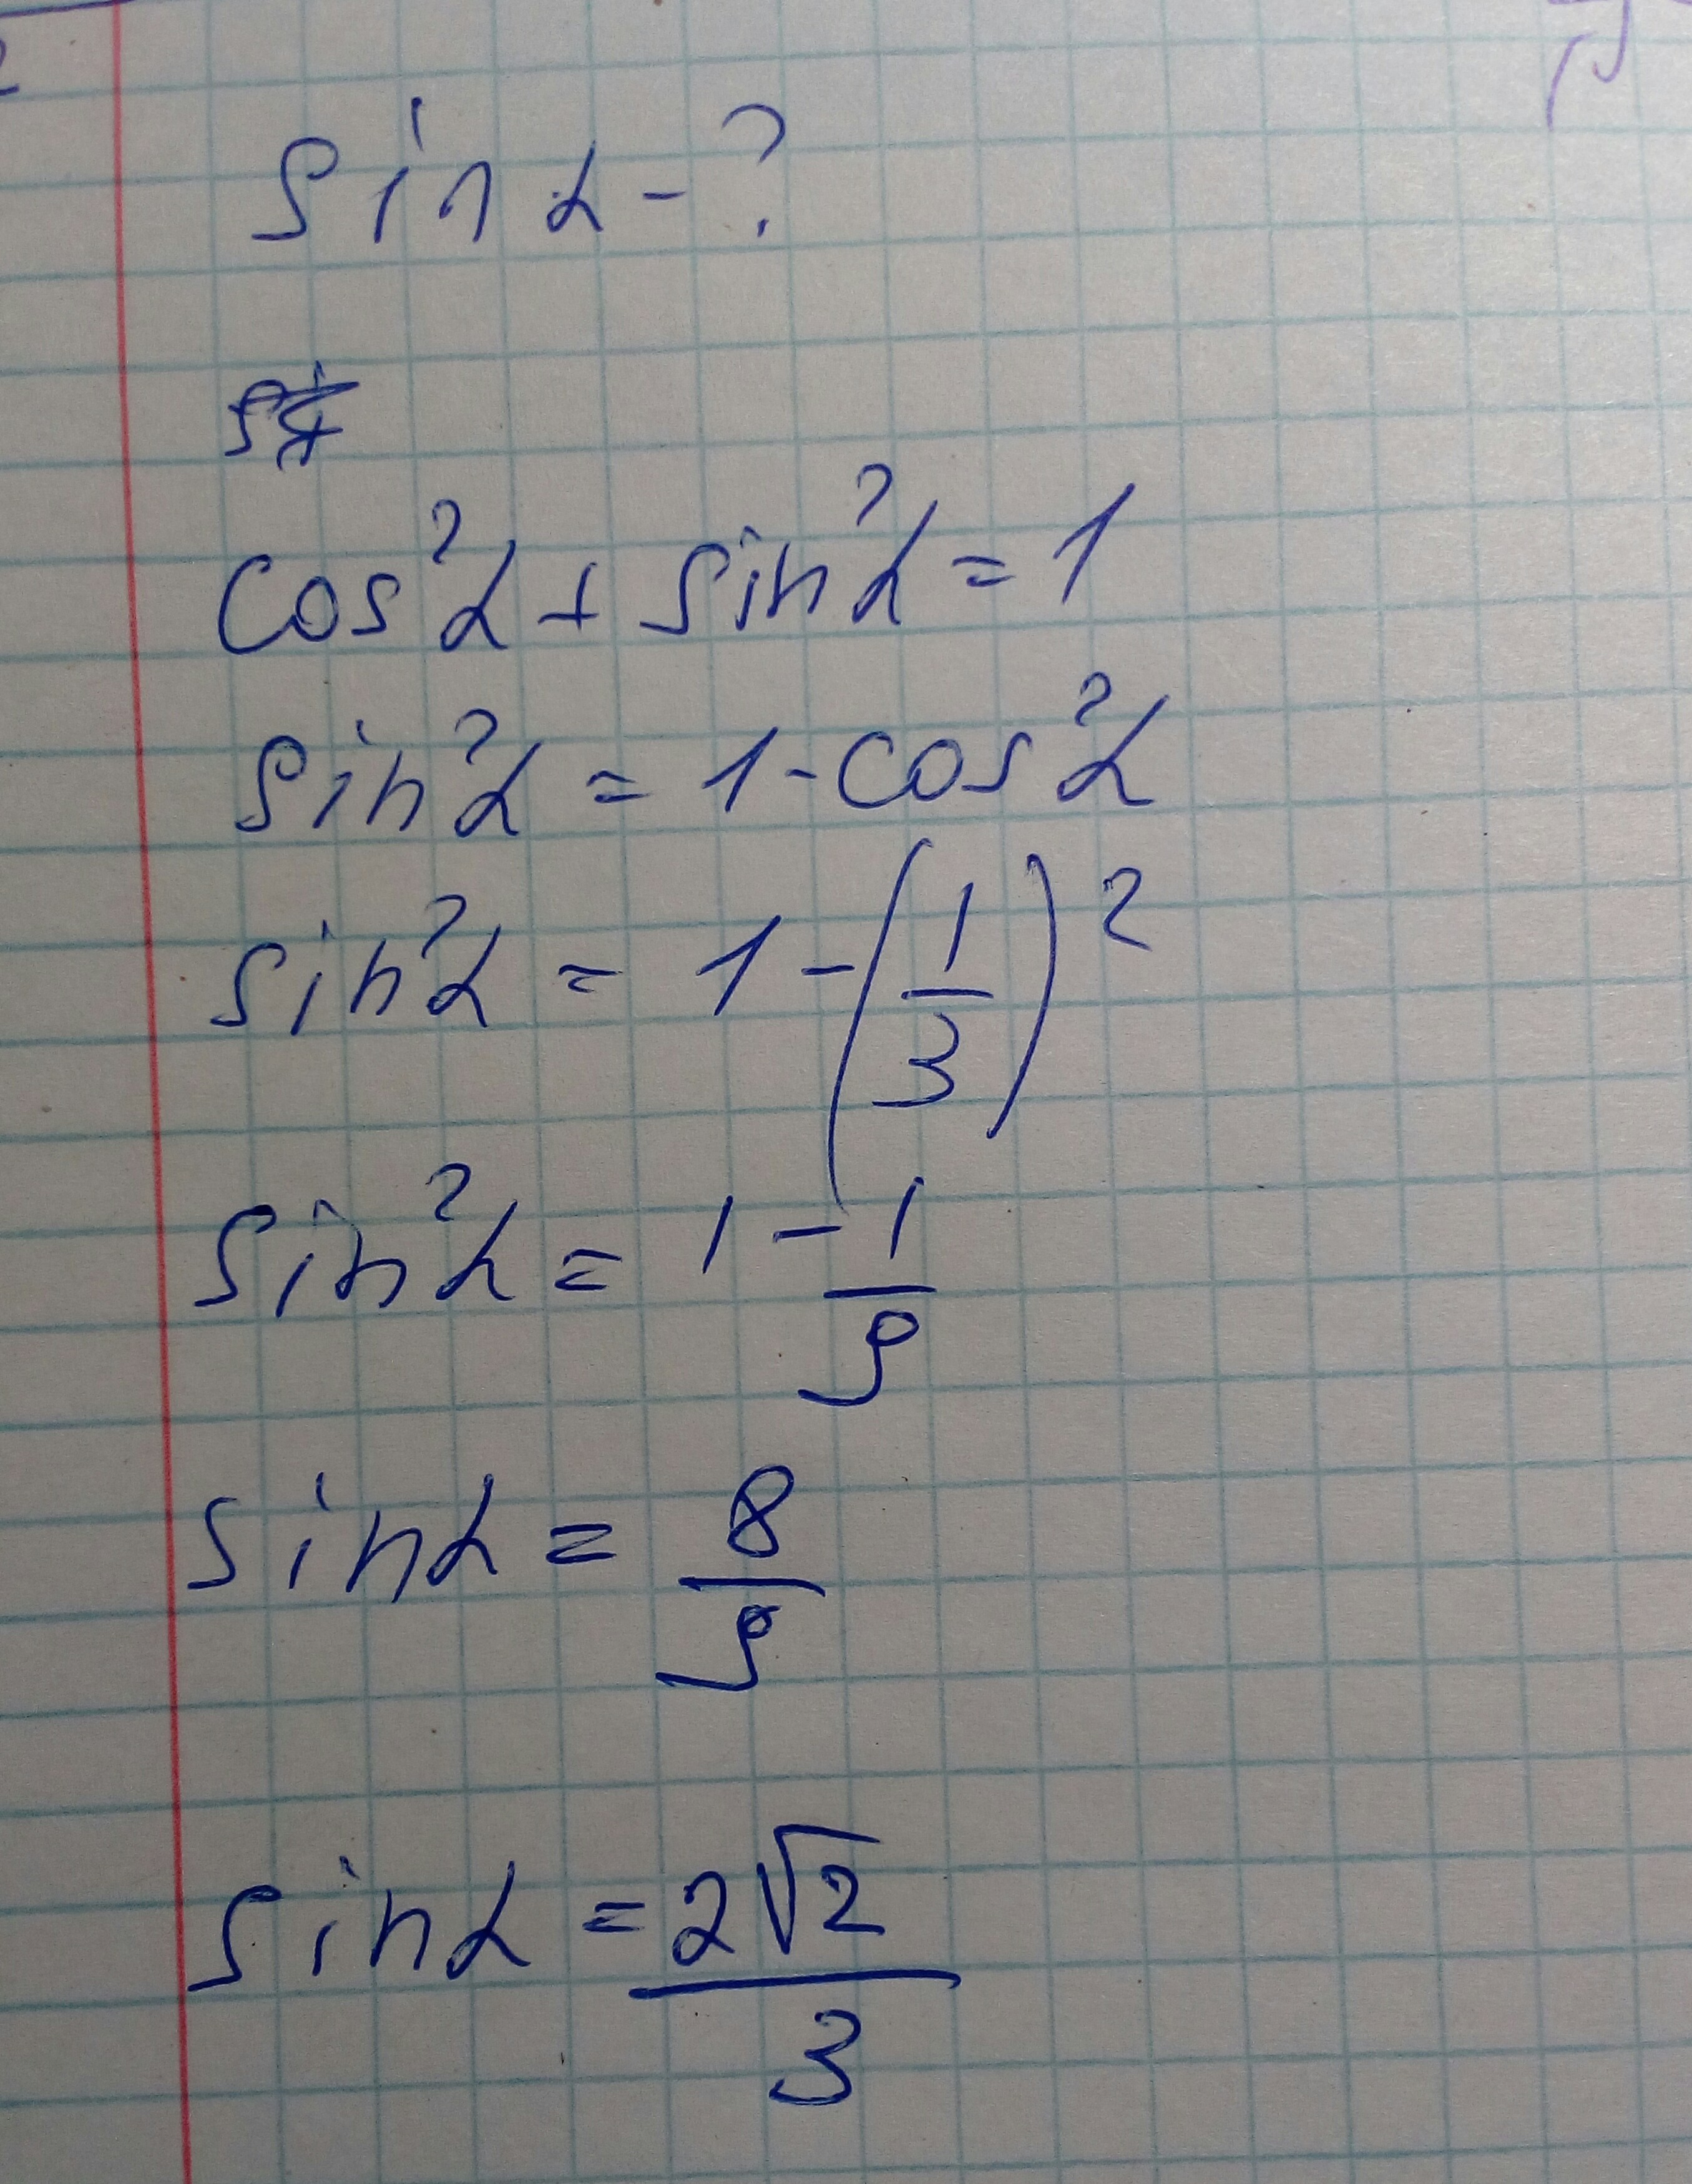 sin α - ?
cos²α + sin²α = 1
sin²α = 1 - cos²α
sin²α = 1 - (1/3)²
sin²α = 1 - 1/9
sin α = 8/9
sin α = 2√2/3